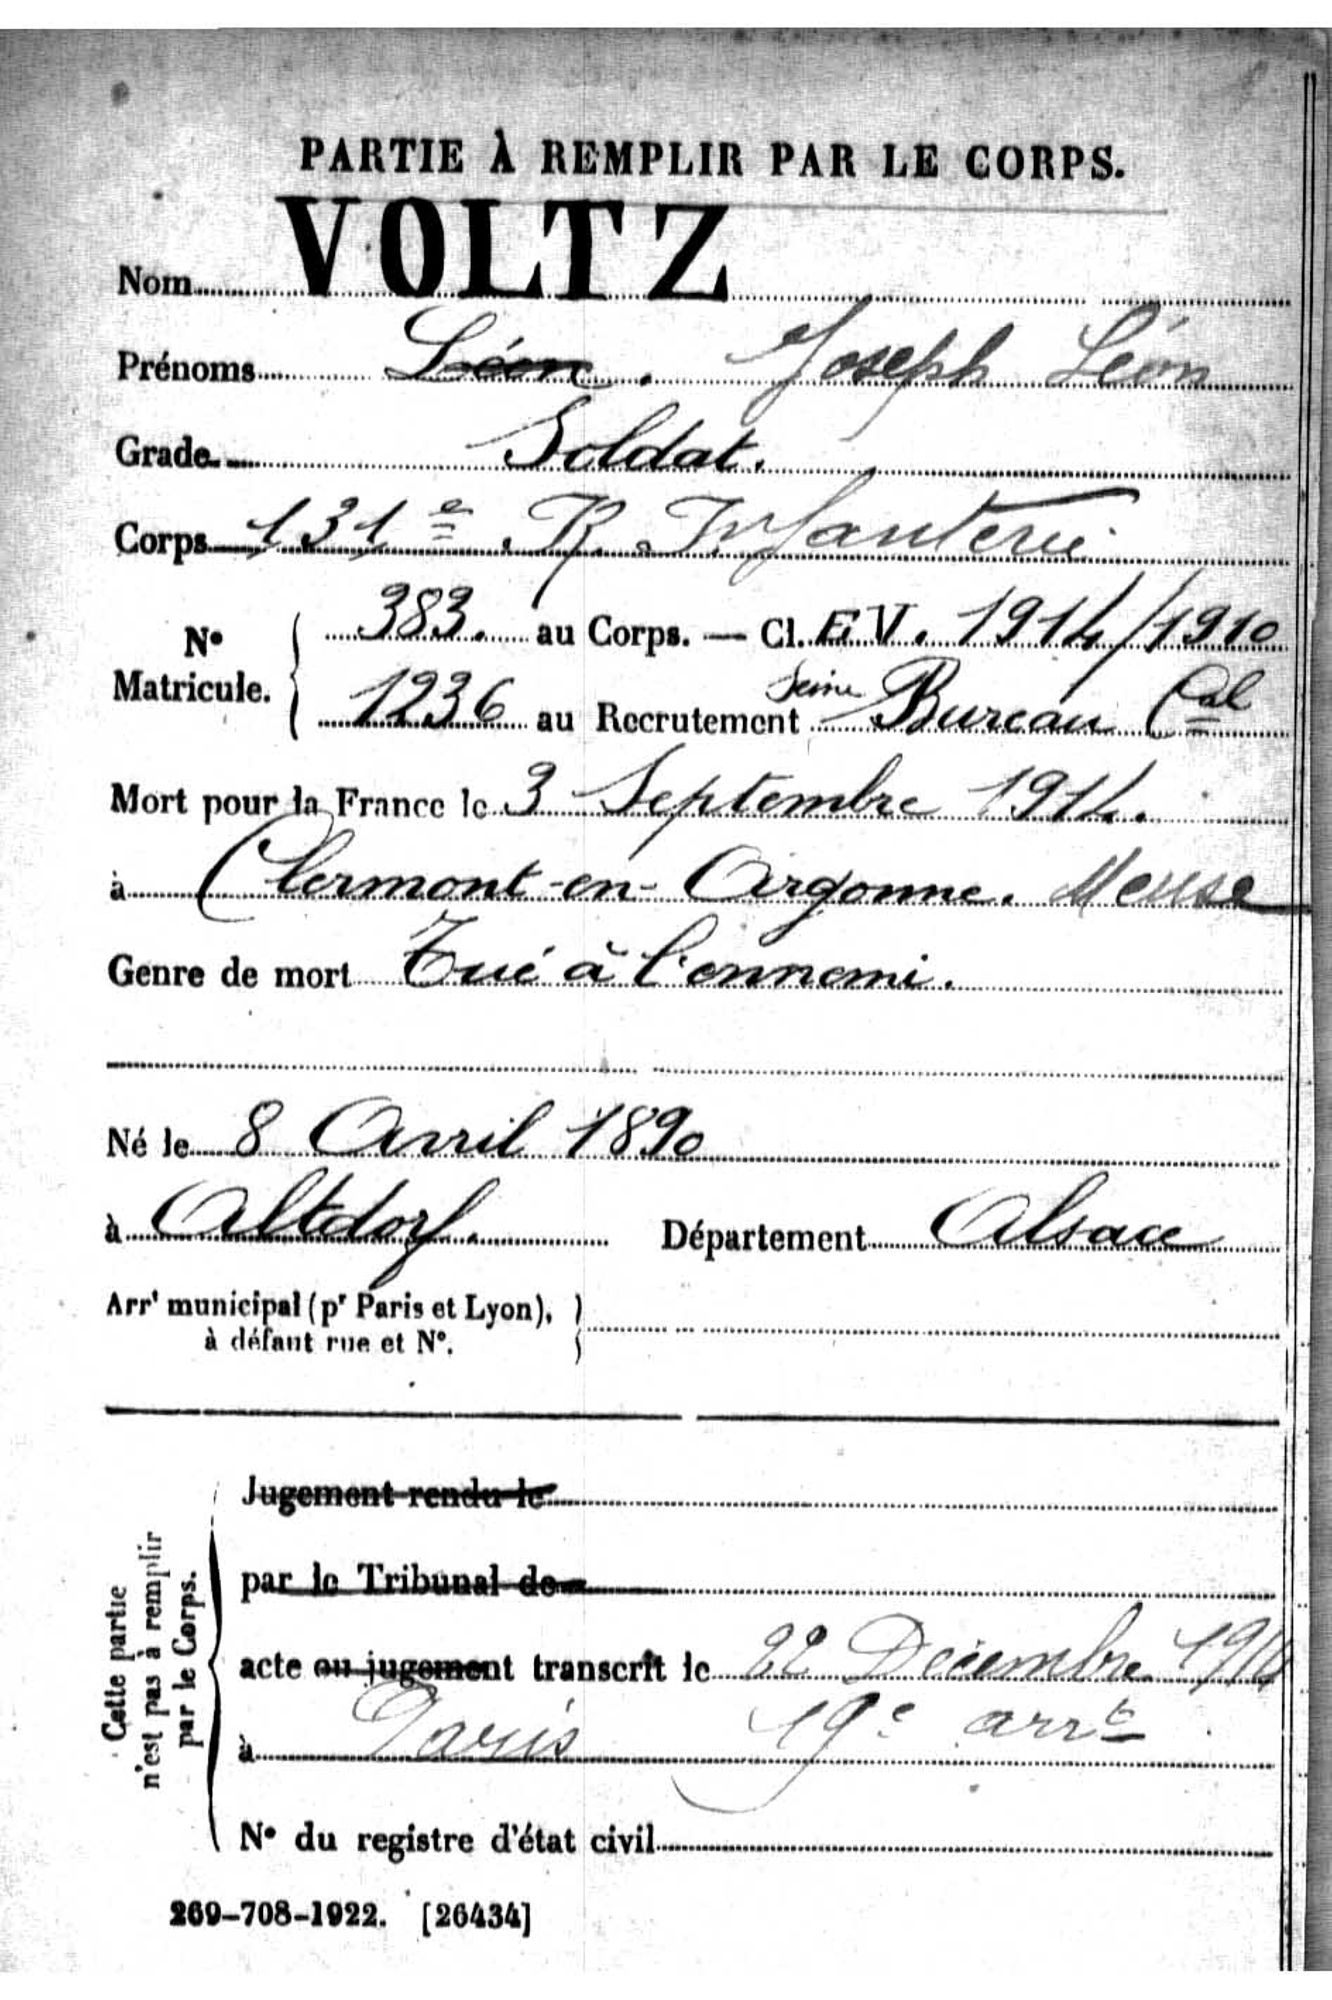 PARTIE À REMPLIR PAR LE CORPS.
Nom VOLTZ
Prénoms Léon. Joseph Léon
Grade Soldat.
Corps 131e R. Infanterie
No Matricule. { 383. au Corps. — Cl. E.V. 1914/1910
1236 au Recrutement Seine Bureau Cal
Mort pour la France le 3 Septembre 1914.
à Clermont-en-Argonne. Meuse
Genre de mort Tué à l'ennemi.
Né le 8 Avril 1890
à Altdorf. Département Alsace
Arrt municipal (pr Paris et Lyon), }
à défaut rue et No.
Cette partie
n'est pas à remplir
par le Corps.
Jugement rendu le
par le Tribunal de
acte ou jugement transcrit le 22 Décembre
à Paris 19e arrt
No du registre d'état civil
269-708-1922. [26434]